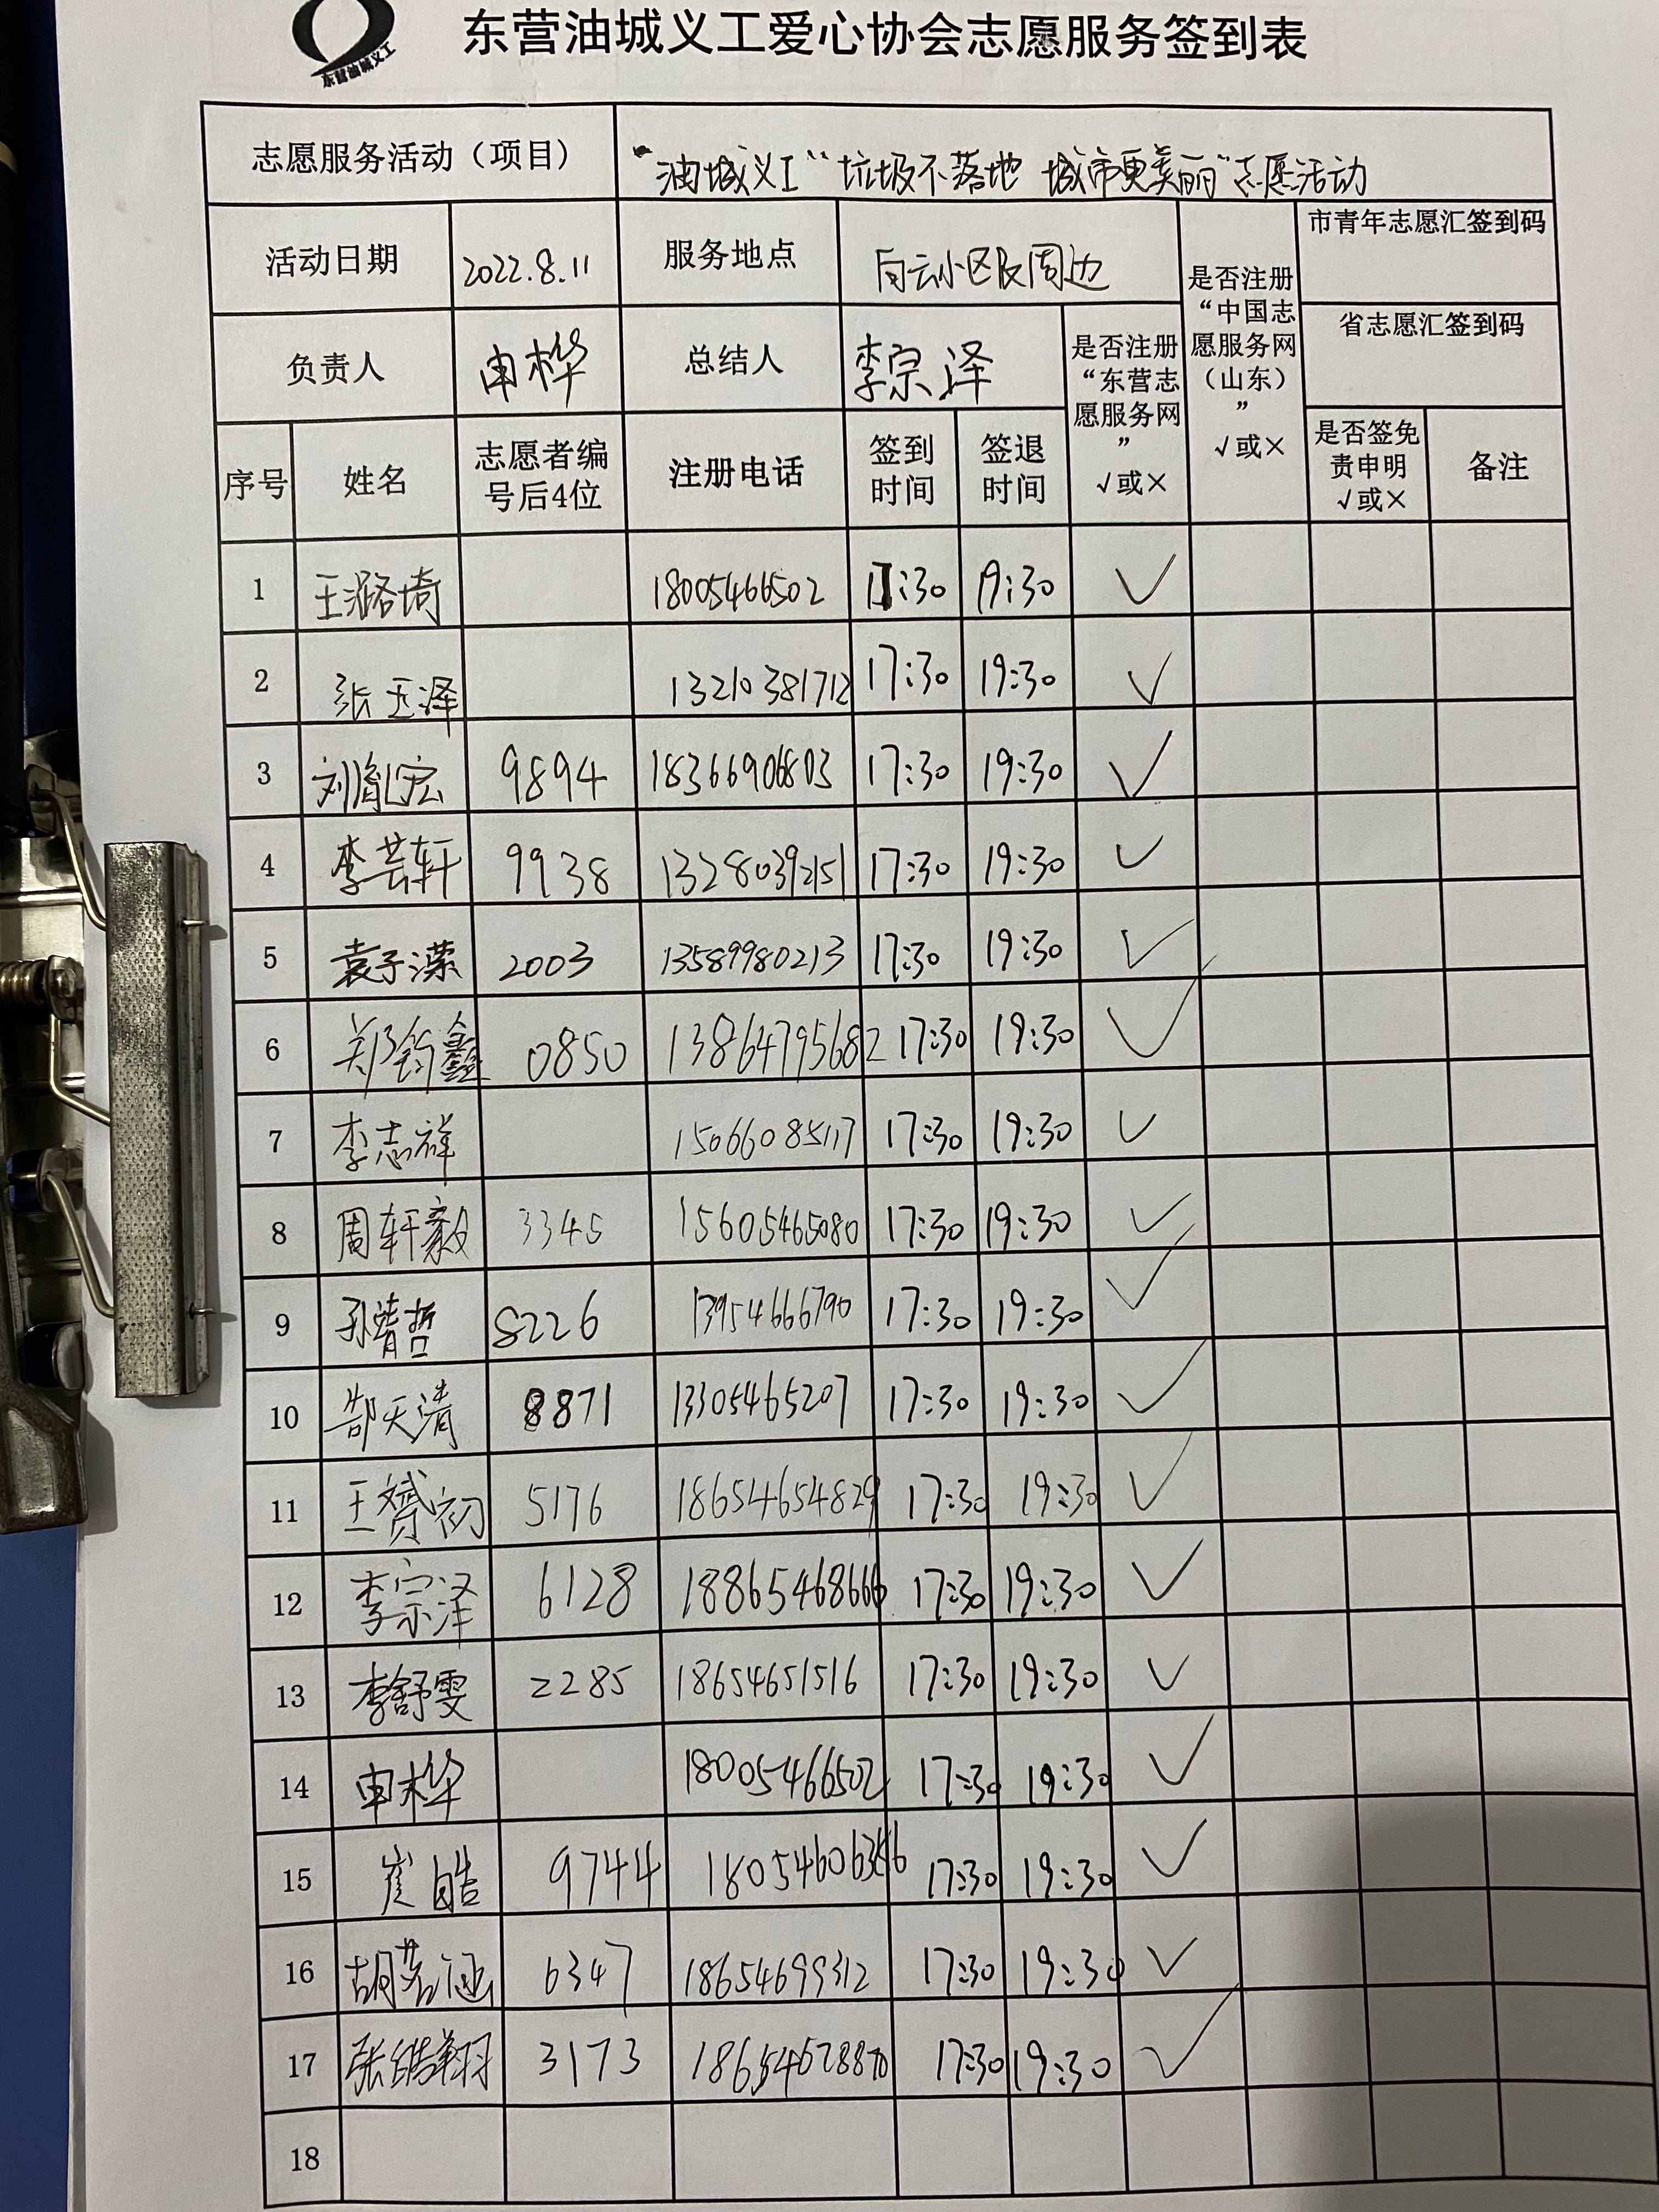 东营油城义工
东营油城义工爱心协会志愿服务签到表
志愿服务活动（项目） “油城义工”“垃圾不落地 城市更美丽”志愿活动
活动日期 2022.8.11 服务地点 向云小区及周边
市青年志愿汇签到码
省志愿汇签到码
负责人 申桦 总结人 李宗泽
是否注册
“东营志
愿服务网
”
√或×
是否注册
“中国志
愿服务网
（山东）
”
√或×
序号 姓名
志愿者编
号后4位
注册电话
签到
时间
签退
时间
是否签免
责申明
√或×
备注
1 王潞埼 18005466502 17:30 19:30 √
2 张玉泽 13210381712 17:30 19:30 √
3 刘胤宏 9894 18366906803 17:30 19:30 √
4 李芸轩 9938 13280392151 17:30 19:30 √
5 袁子溁 2003 13589980213 17:30 19:30 √
6 郑钧鑫 0850 13864795682 17:30 19:30 √
7 李志祥 15066085117 17:30 19:30 √
8 周轩毅 3345 15605465080 17:30 19:30 √
9 孙清哲 8226 13954666790 17:30 19:30 √
10 郜天清 8871 13305465207 17:30 19:30 √
11 王赟初 5176 18654654829 17:30 19:30 √
12 李宗泽 6128 18865468666 17:30 19:30 √
13 李舒雯 2285 18654651516 17:30 19:30 √
14 申桦 18005466502 17:30 19:30 √
15 崔皓 9744 17:30 19:30 √
16 胡茗涵 6347 18654699312 17:30 19:30 √
17 张皓翔 3173 18654678870 17:30 19:30 √
18